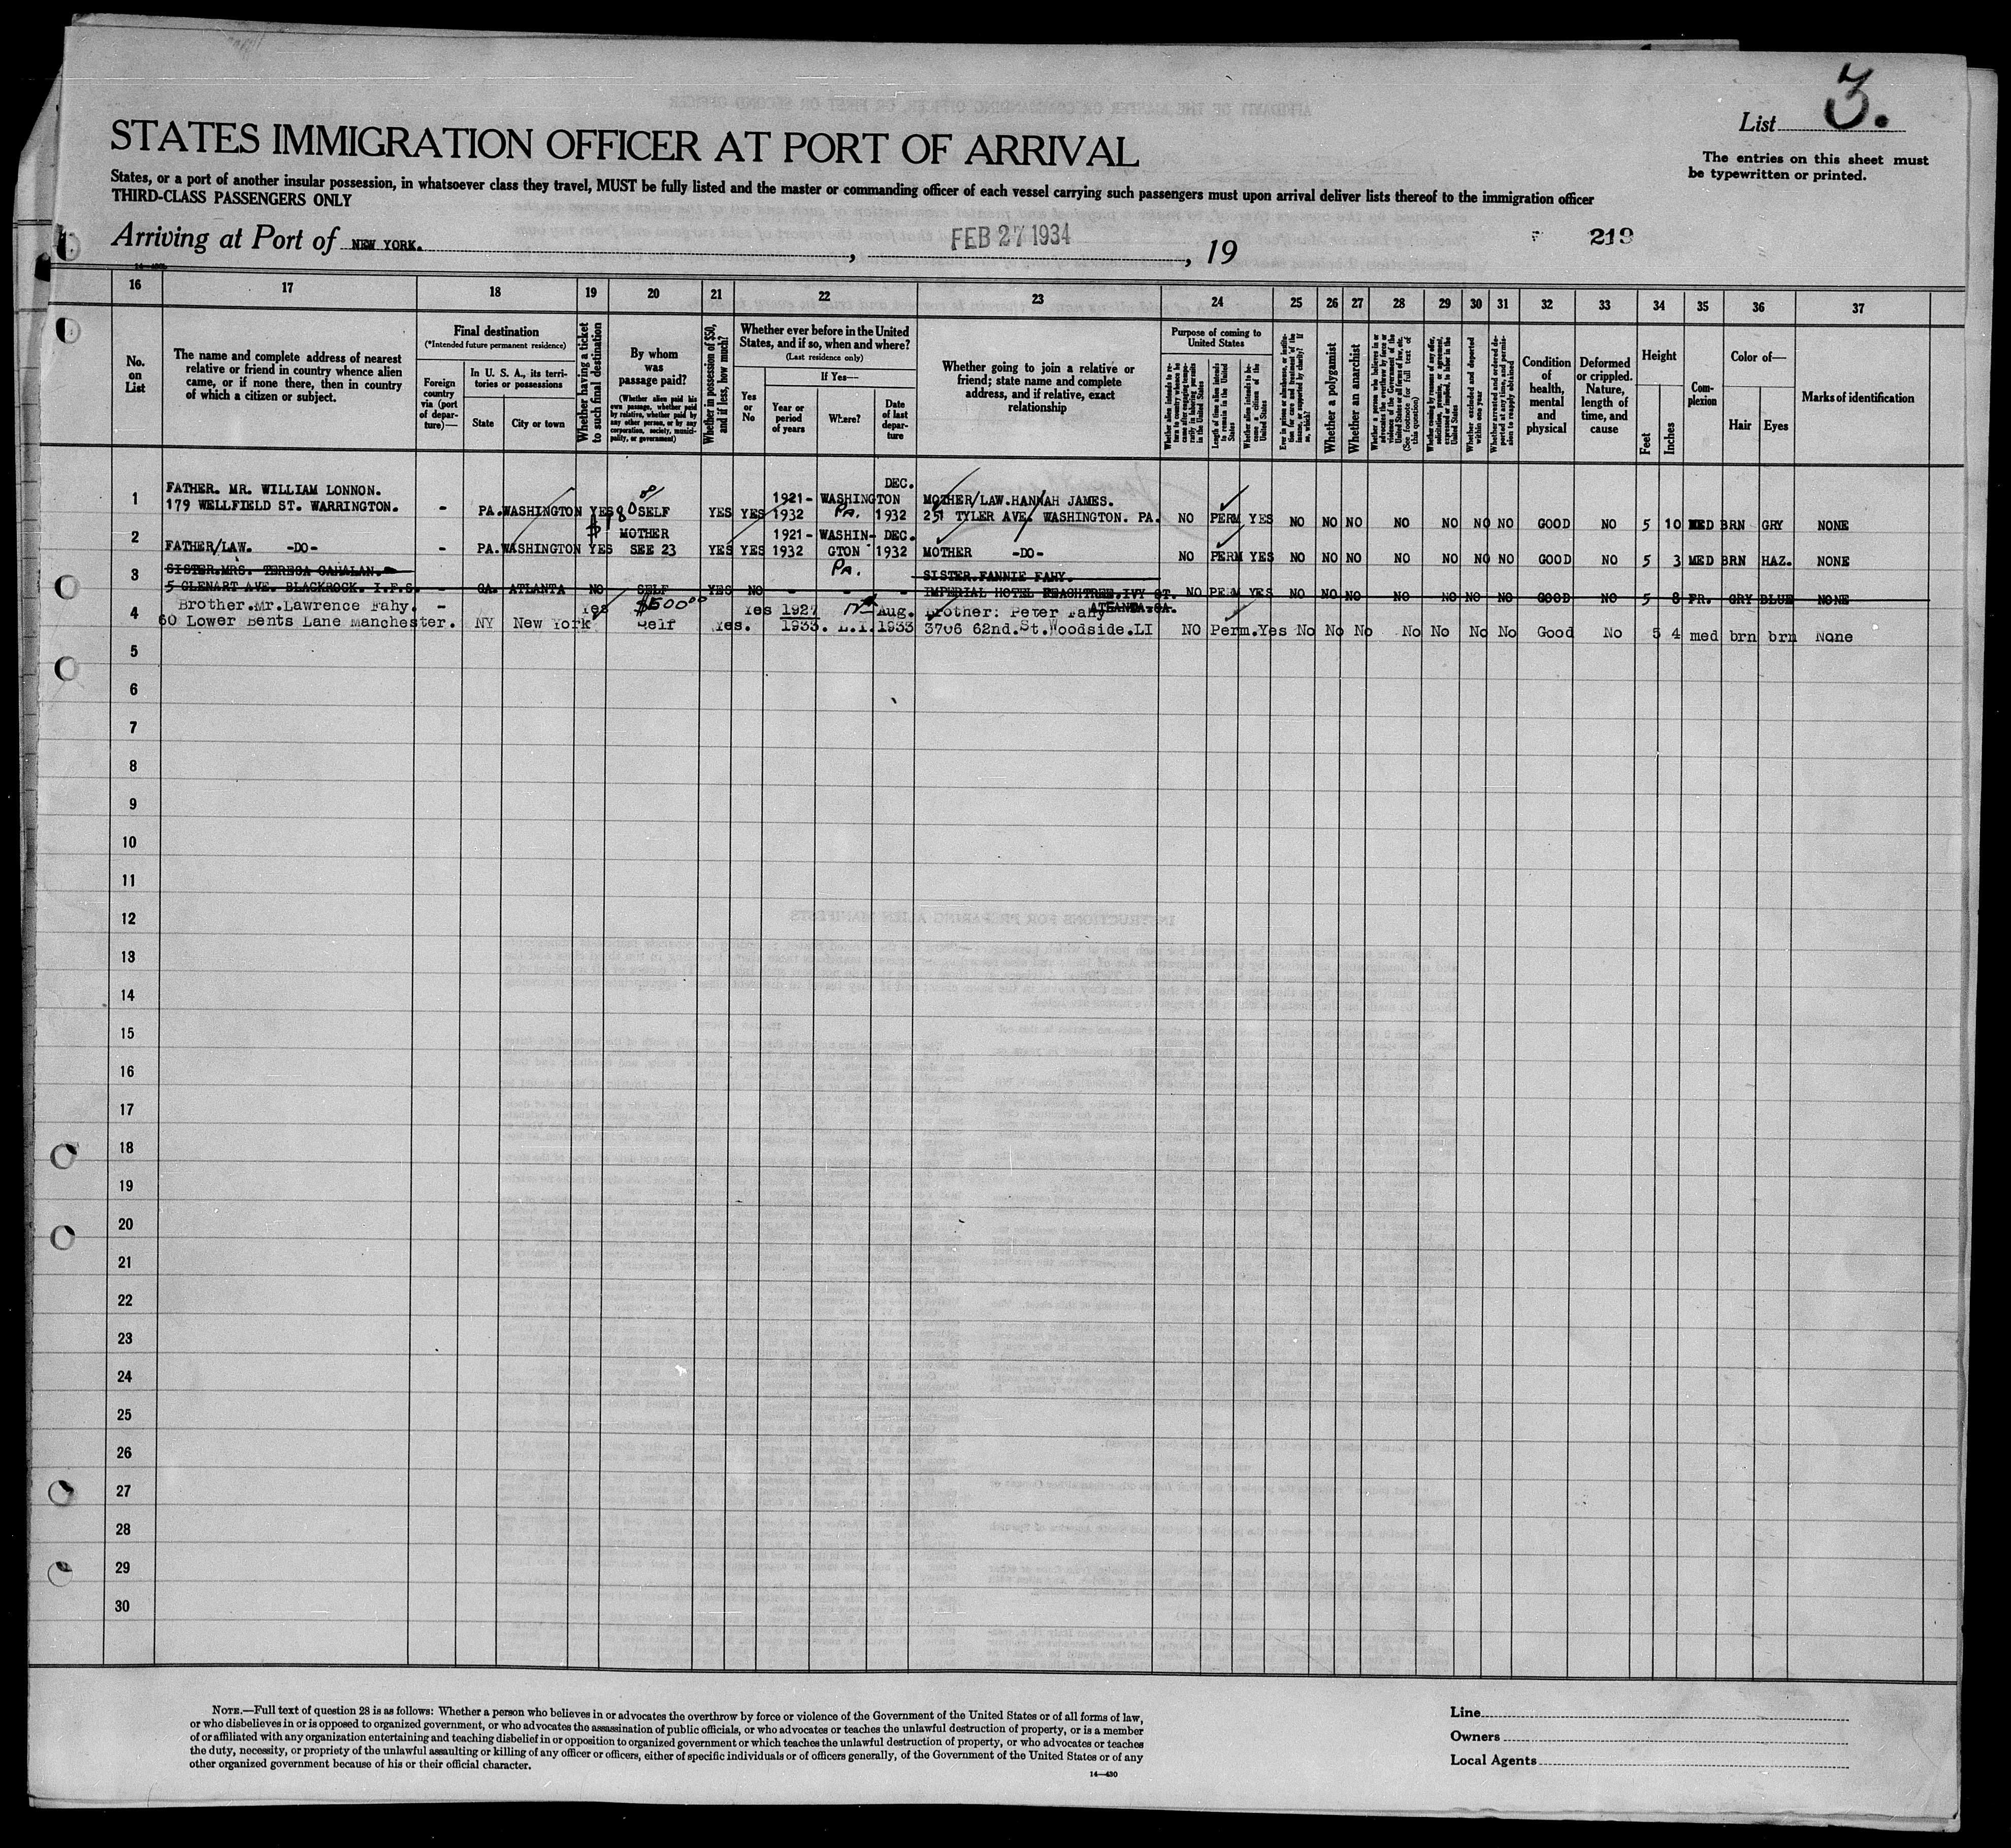 List 3.
The entries on this sheet must
be typewritten or printed.
STATES IMMIGRATION OFFICER AT PORT OF ARRIVAL
States, or a port of another insular possession, in whatsoever class they travel, MUST be fully listed and the master or commanding officer of each vessel carrying such passengers must upon arrival deliver lists thereof to the immigration officer
THIRD-CLASS PASSENGERS ONLY
Arriving at Port of NEW YORK. , FEB 27 1934 , 19
219
16 17 18 19 20 21 22 23 24 25 26 27 28 29 30 31 32 33 34 35 36 37
No.
on
List
The name and complete address of nearest
relative or friend in country whence alien
came, or if none there, then in country
of which a citizen or subject.
Final destination
(*Intended future permanent residence)
Foreign
country
via (port
of depar-
ture)—
In U. S. A., its terri-
tories or possessions
State
City or town
Whether having a ticket
to such final destination
By whom
was
passage paid?
(Whether alien paid his
own passage, whether paid
by relative, whether paid by
any other person, or by any
corporation, society, munici-
pality, or government)
Whether in possession of $50,
and if less, how much?
Whether ever before in the United
States, and if so, when and where?
(Last residence only)
Yes
or
No
If Yes—
Year or
period
of years
Where?
Date
of last
depar-
ture
Whether going to join a relative or
friend; state name and complete
address, and if relative, exact
relationship
Purpose of coming to
United States
Length of time alien intends
to remain in the United
States
Whether alien intends to be-
come a citizen of the
United States
Whether a polygamist
Whether an anarchist
(See footnote for full text of
this question)
Whether excluded and deported
within one year
Condition
of
health,
mental
and
physical
Deformed
or crippled.
Nature,
length of
time, and
cause
Height
Feet
Inches
Com-
plexion
Color of—
Hair
Eyes
Marks of identification
1 FATHER. MR. WILLIAM LONNON. DEC.
1921- WASHINGTON MOTHER/LAW.HANNAH JAMES.
179 WELLFIELD ST. WARRINGTON. - PA. WASHINGTON YES SELF YES YES 1932 PA. 1932 251 TYLER AVE. WASHINGTON. PA. NO PERM YES NO NO NO NO NO NO NO GOOD NO 5 10 MED BRN GRY NONE
$180
2 MOTHER 1921- WASHIN- DEC.
FATHER/LAW. -DO- - PA. WASHINGTON YES SEE 23 YES YES 1932 GTON 1932 MOTHER -DO- NO PERM YES NO NO NO NO NO NO NO GOOD NO 5 3 MED BRN HAZ. NONE
PA.
3 SISTER.MRS. TERESA CAHALAN. SISTER.FANNIE FAHY.
5 GLENART AVE. BLACKROCK. I.F.S. - GA. ATLANTA NO SELF YES NO - - - IMPERIAL HOTEL PEACHTREE.IVY ST. NO PERM YES NO NO NO NO NO NO NO GOOD NO 5 8 FR. GRY BLUE NONE
ATLANTA.GA.
4 Brother.Mr.Lawrence Fahy. - Yes $500 00 Yes 1927 Aug. Brother: Peter Fahy
60 Lower Bents Lane Manchester. NY New York Self Yes. 1933. L.I. 1933 3706 62nd.St.Woodside.LI NO Perm.Yes No No No No No No No Good No 5 4 med brn brn None
5
6
7
8
9
10
11
12
13
14
15
16
17
18
19
20
21
22
23
24
25
26
27
28
29
30
NOTE.—Full text of question 28 is as follows: Whether a person who believes in or advocates the overthrow by force or violence of the Government of the United States or of all forms of law,
or who disbelieves in or is opposed to organized government, or who advocates the assassination of public officials, or who advocates or teaches the unlawful destruction of property, or is a member
of or affiliated with any organization entertaining and teaching disbelief in or opposition to organized government or which teaches the unlawful destruction of property, or who advocates or teaches
the duty, necessity, or propriety of the unlawful assaulting or killing of any officer or officers, either of specific individuals or of officers generally, of the Government of the United States or of any
other organized government because of his or their official character.
14—430
Line
Owners
Local Agents